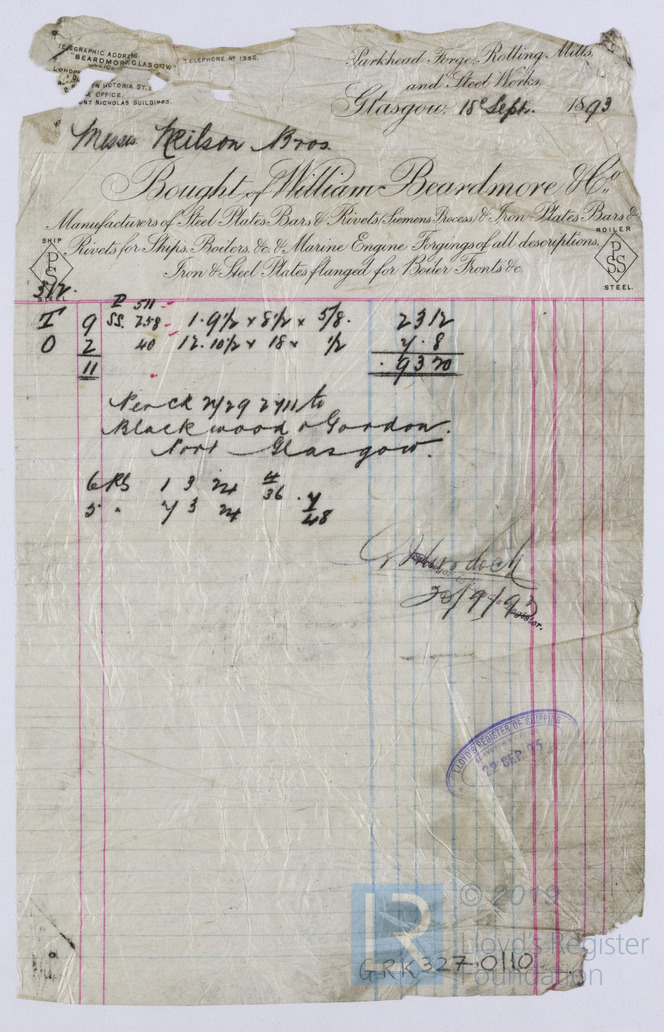 TELEGRAPHIC ADDRESS
"BEARDMORE, GLASGOW"
TELEPHONE No 1356.
VICTORIA ST.
OFFICE,
NICHOLAS BUILDINGS.
Parkhead Forge, Rolling Mills,
and Steel Works,
Glasgow, 18 Sept. 1893
Messrs Neilson Bros.
Bought of William Beardmore & Co.
Manufacturers of Steel Plates Bars & Rivets (Siemens Process) & Iron Plates Bars &
Rivets for Ships, Boilers, &c. & Marine Engine Forgings of all descriptions,
Iron & Steel Plates flanged for Boiler Fronts &c.
SHIP
PSS
BOILER
PSS
STEEL.
P 511
I 9 SS. 258 1.9½ × 8½ × 5/8. 2312
O 2 40 12.10½ × 18 × ½ 7.8
11 9320
Blackwood & Gordon.
Port Glasgow.
6 RS 1 3 24 4/36
5 " 7 3 24 7/48
Murdoch
20/9/93
LLOYD'S REGISTER OF SHIPPING
22 SEP. 93
LR
© 2019
Lloyd's Register
Foundation
GRK327-0110